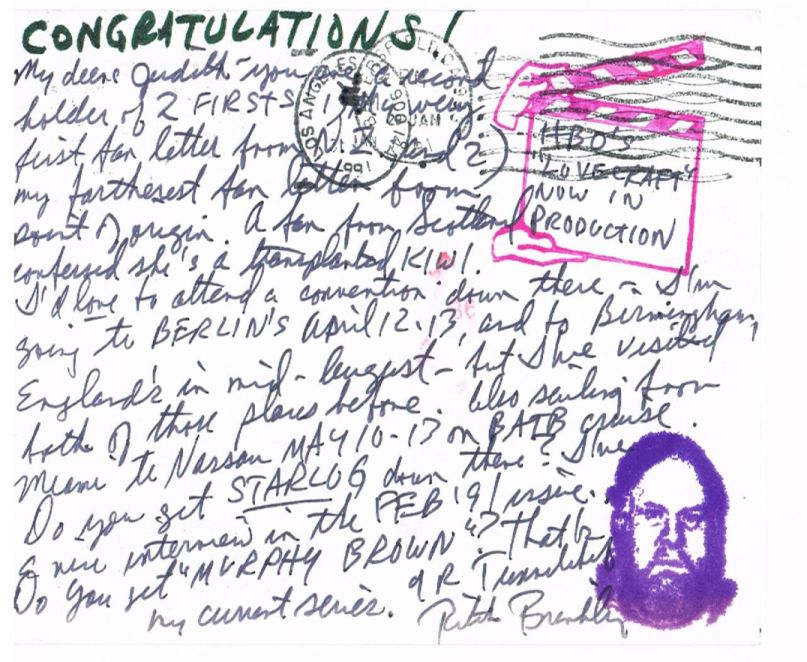 CONGRATULATIONS!
My dear Judith - you are a record
holder of 2 FIRSTS - 1) my very
first fan letter from N.Z. and 2)
my farthest fan letter from
point of origin. A fan from Scotland
confessed she's a transplanted KIWI.
I'd love to attend a convention down there - I'm
going to BERLIN'S April 12-13, and to Birmingham,
England's in mid-August - but I've visited
both of those places before. Also sailing from
Miami to Nassau MAY 10-13 on BATB cruise.
Do you get STARLOG down there? I've
a nice interview in the FEB '91 issue.
Do you get "MURPHY BROWN"? That's
my current series.
HBO'S
"LOVECRAFT"
NOW IN
PRODUCTION
LOS ANGELES
JAN
1991